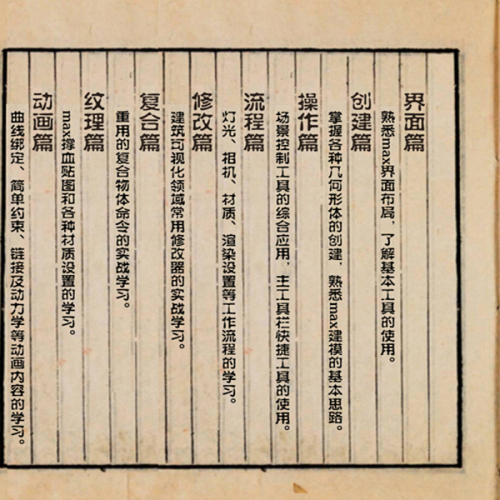 界面篇
熟悉max界面布局，了解基本工具的使用。
创建篇
掌握各种几何形体的创建，熟悉max建模的基本思路。
操作篇
场景控制工具的综合应用，主工具栏快捷工具的使用。
流程篇
灯光、相机、材质、渲染设置等工作流程的学习。
修改篇
建筑可视化领域常用修改器的实战学习。
复合篇
重用的复合物体命令的实战学习。
纹理篇
max撑血贴图和各种材质设置的学习。
动画篇
曲线绑定、简单约束、链接及动力学等动画内容的学习。